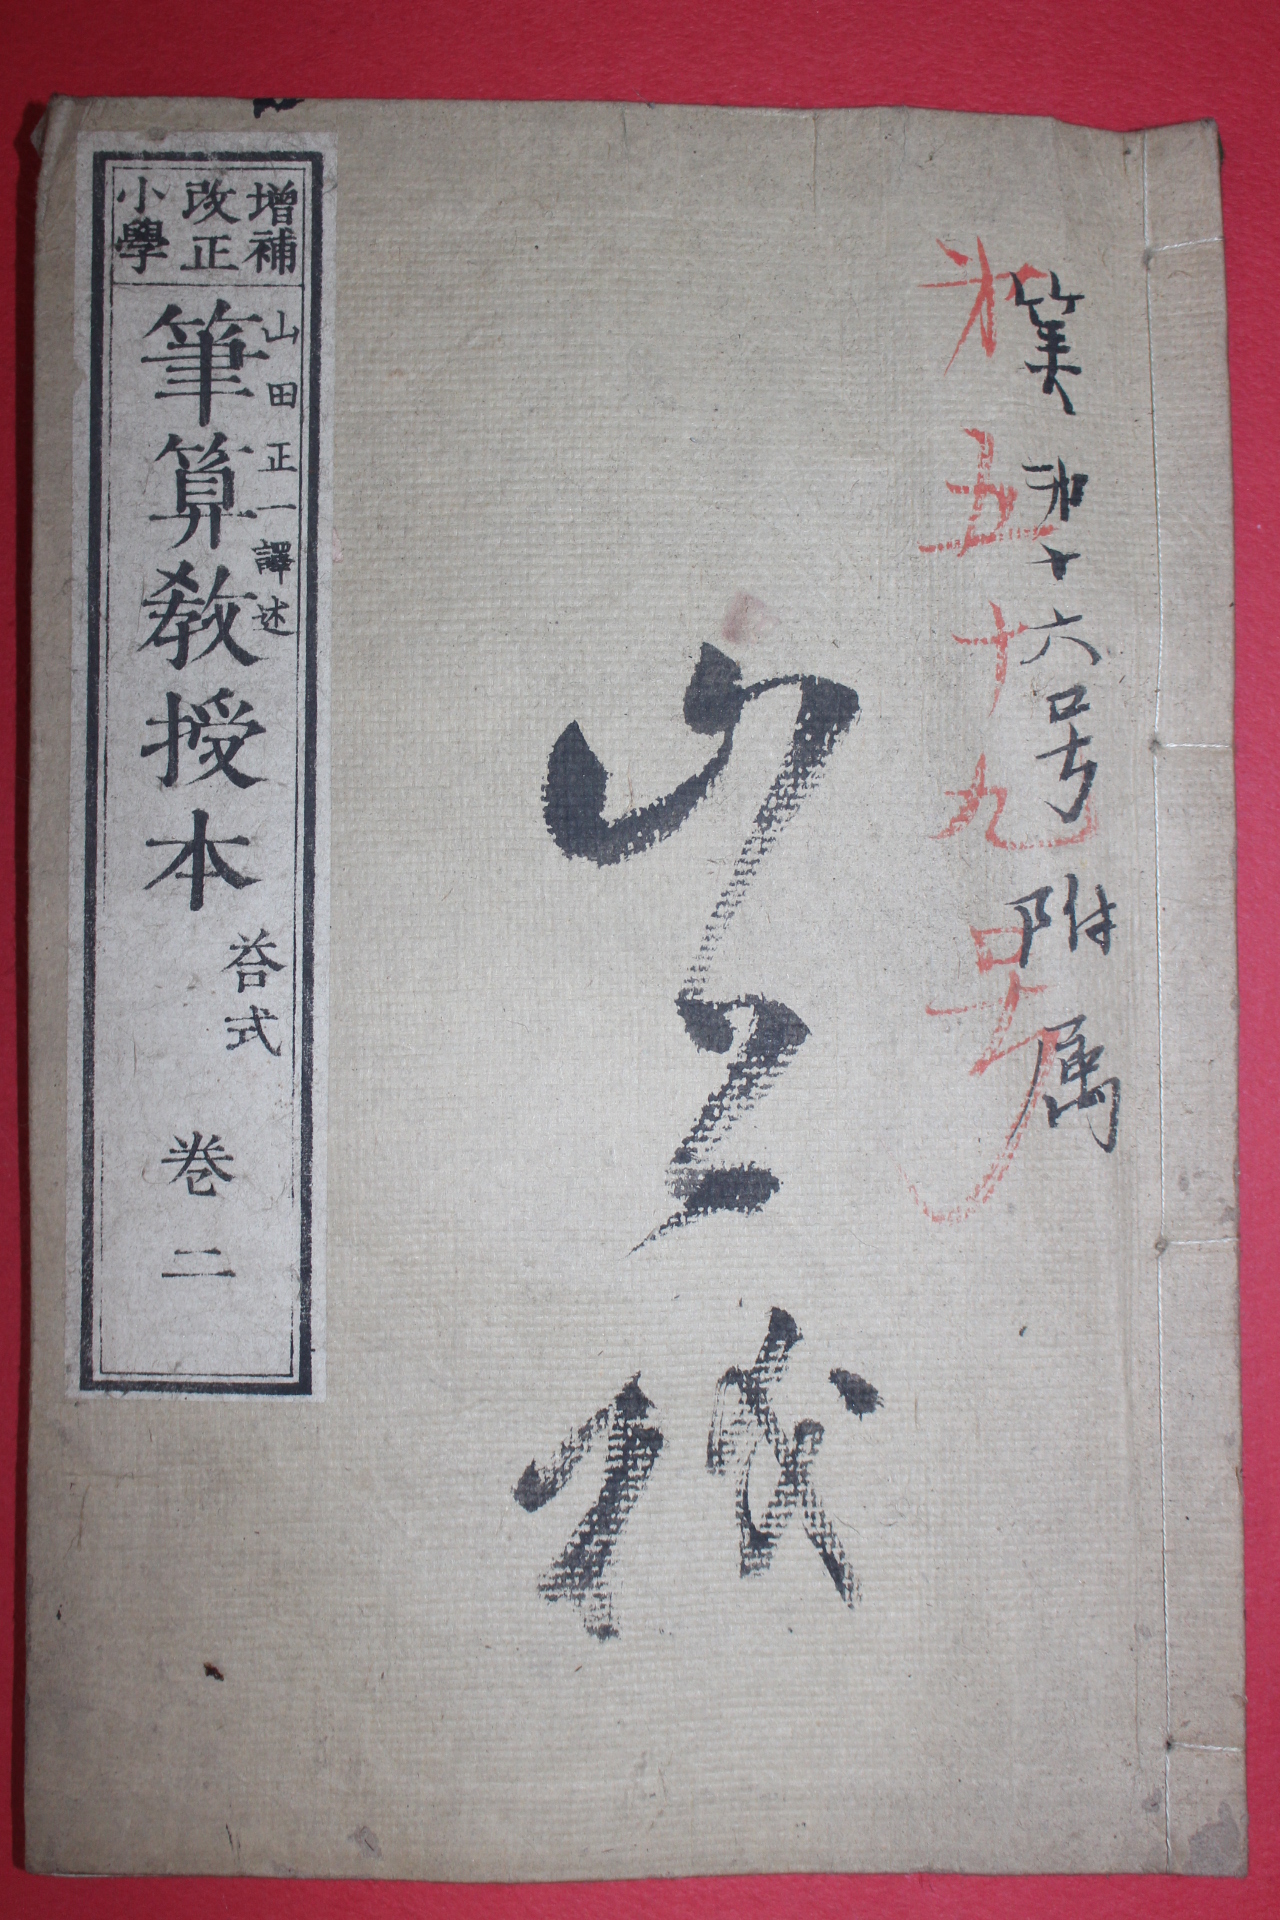 第五十九号
第十六号附属
増補
改正
小學
山田正一譯述
筆算教授本
荅式
巻二